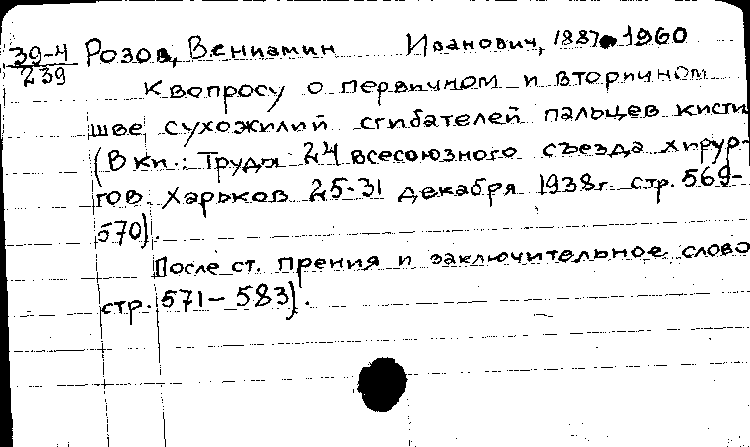 39-4 Розов, Вениамин Иванович, 1887-1960
239
К вопросу о первичном и вторичном
шве сухожилий сгибателей пальцев кисти
(В кн.: Труды 24 всесоюзного съезда хирур-
гов. Харьков 25-31 декабря 1938г стр. 569-
570).
После ст. прения и заключительное слово
стр. 571-583).